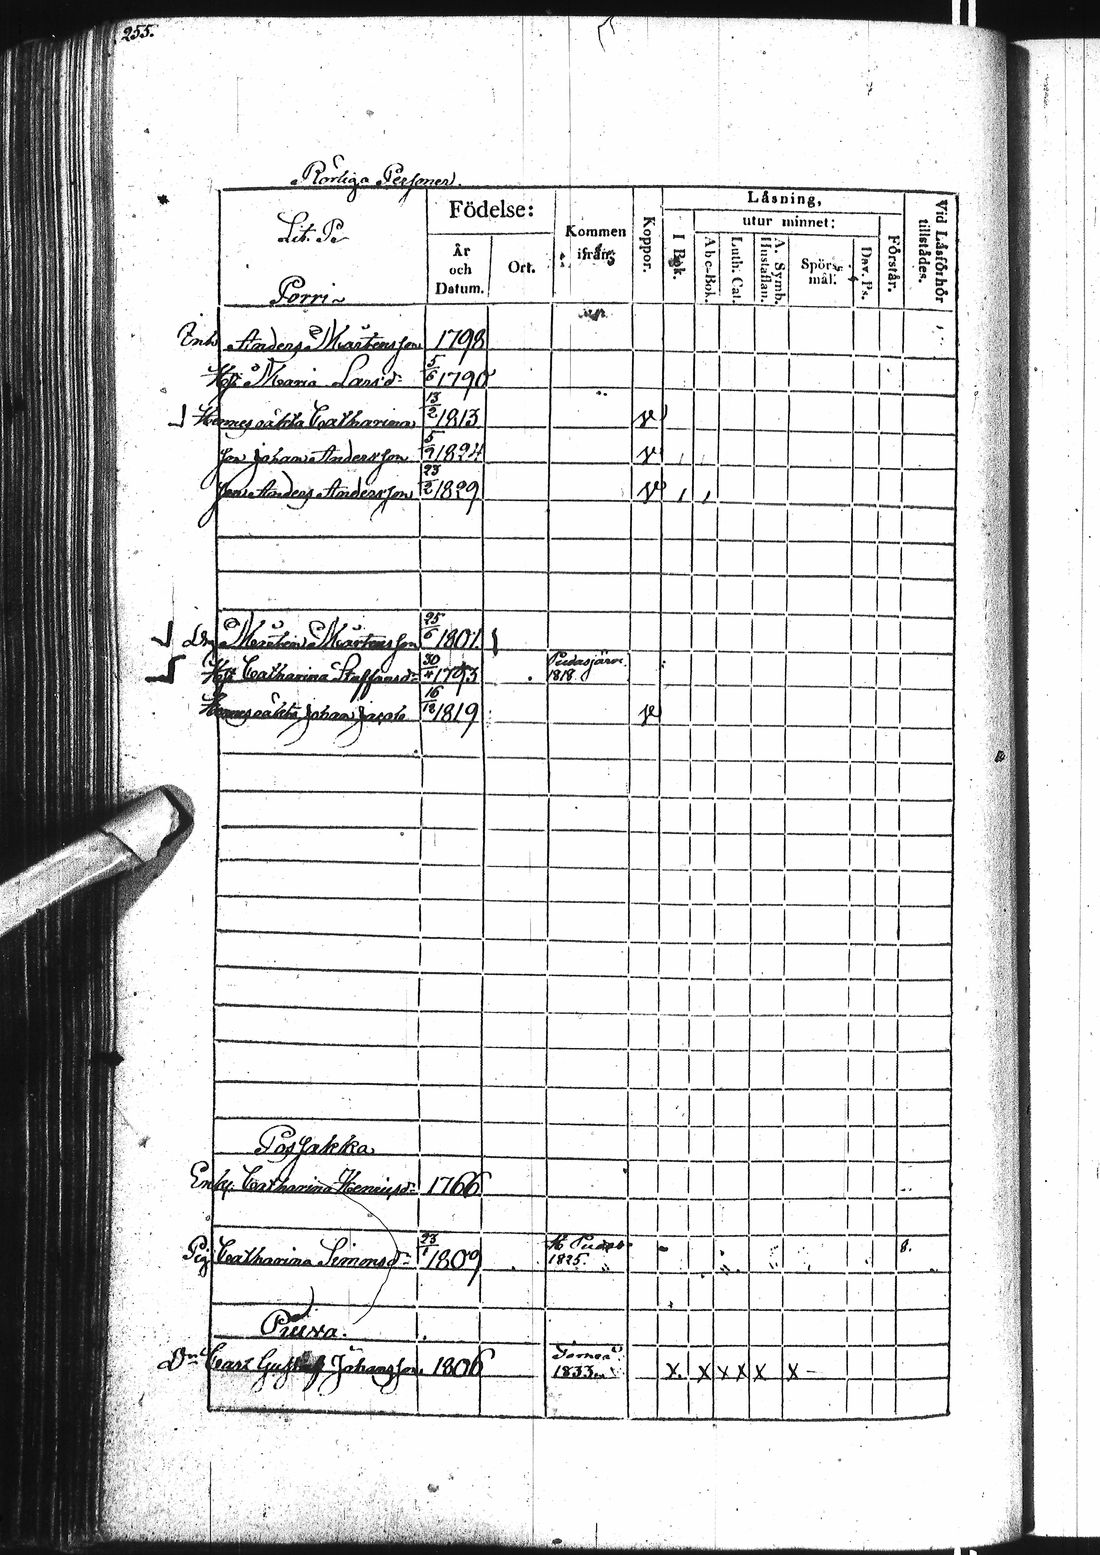 255.
Rörliga Personer.
Lit. P.
Porri
Födelse:
År
och
Datum.
Ort.
Kommen
ifrån
Koppor.
Läsning,
I Bok.
utur minnet:
Abc-Bok.
Luth. Cat.
A. Symb.
Hustaflan.
Spörs-
mål.
Dav. Ps.
Förstår.
Vid Läsförhör
tillstädes.
Anders Mårtensson 1798
Hu Maria Larsd: 5/6 1790
Catharina 13/2 1813 v
Son Johan Andersson 5/9 1824 v
Son Anders Andersson 23/2 1829 v
Mårten Mårtensson 25/6 1801
Hu Catharina Staffansd: 30/4 1793 Pudasjärvi 1818
Johan Jacob 16/12 1819 v
Posjakka
Enk. Catharina Henricsd: 1766
Pig Catharina Simonsd: 23/1 1809 1825. 8.
Puura.
Dr Carl Gustaf Johansson 1806 Torneå 1833 x x x x x x -